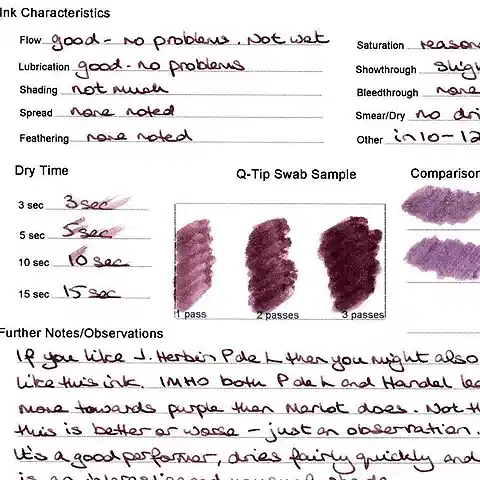 Ink Characteristics
Flow good - no problems. Not wet
Saturation reason
Lubrication good - no problems
Showthrough slig
Shading not much
Bleedthrough none
Spread none noted
Smear/Dry no dri
Feathering none noted
Other in 10-12
Dry Time
Q-Tip Swab Sample
Comparison
3 sec 3sec
5 sec 5sec
10 sec 10 sec
15 sec 15 sec
1 pass 2 passes 3 passes
Further Notes/Observations
If you like J. Herbin P de L then you might also
like this ink. IMHO both P de L and Handel lea
more towards purple than Merlot does. Not th
this is better or worse - just an observation.
It's a good performer, dries fairly quickly and
is an interesting and unusual shade